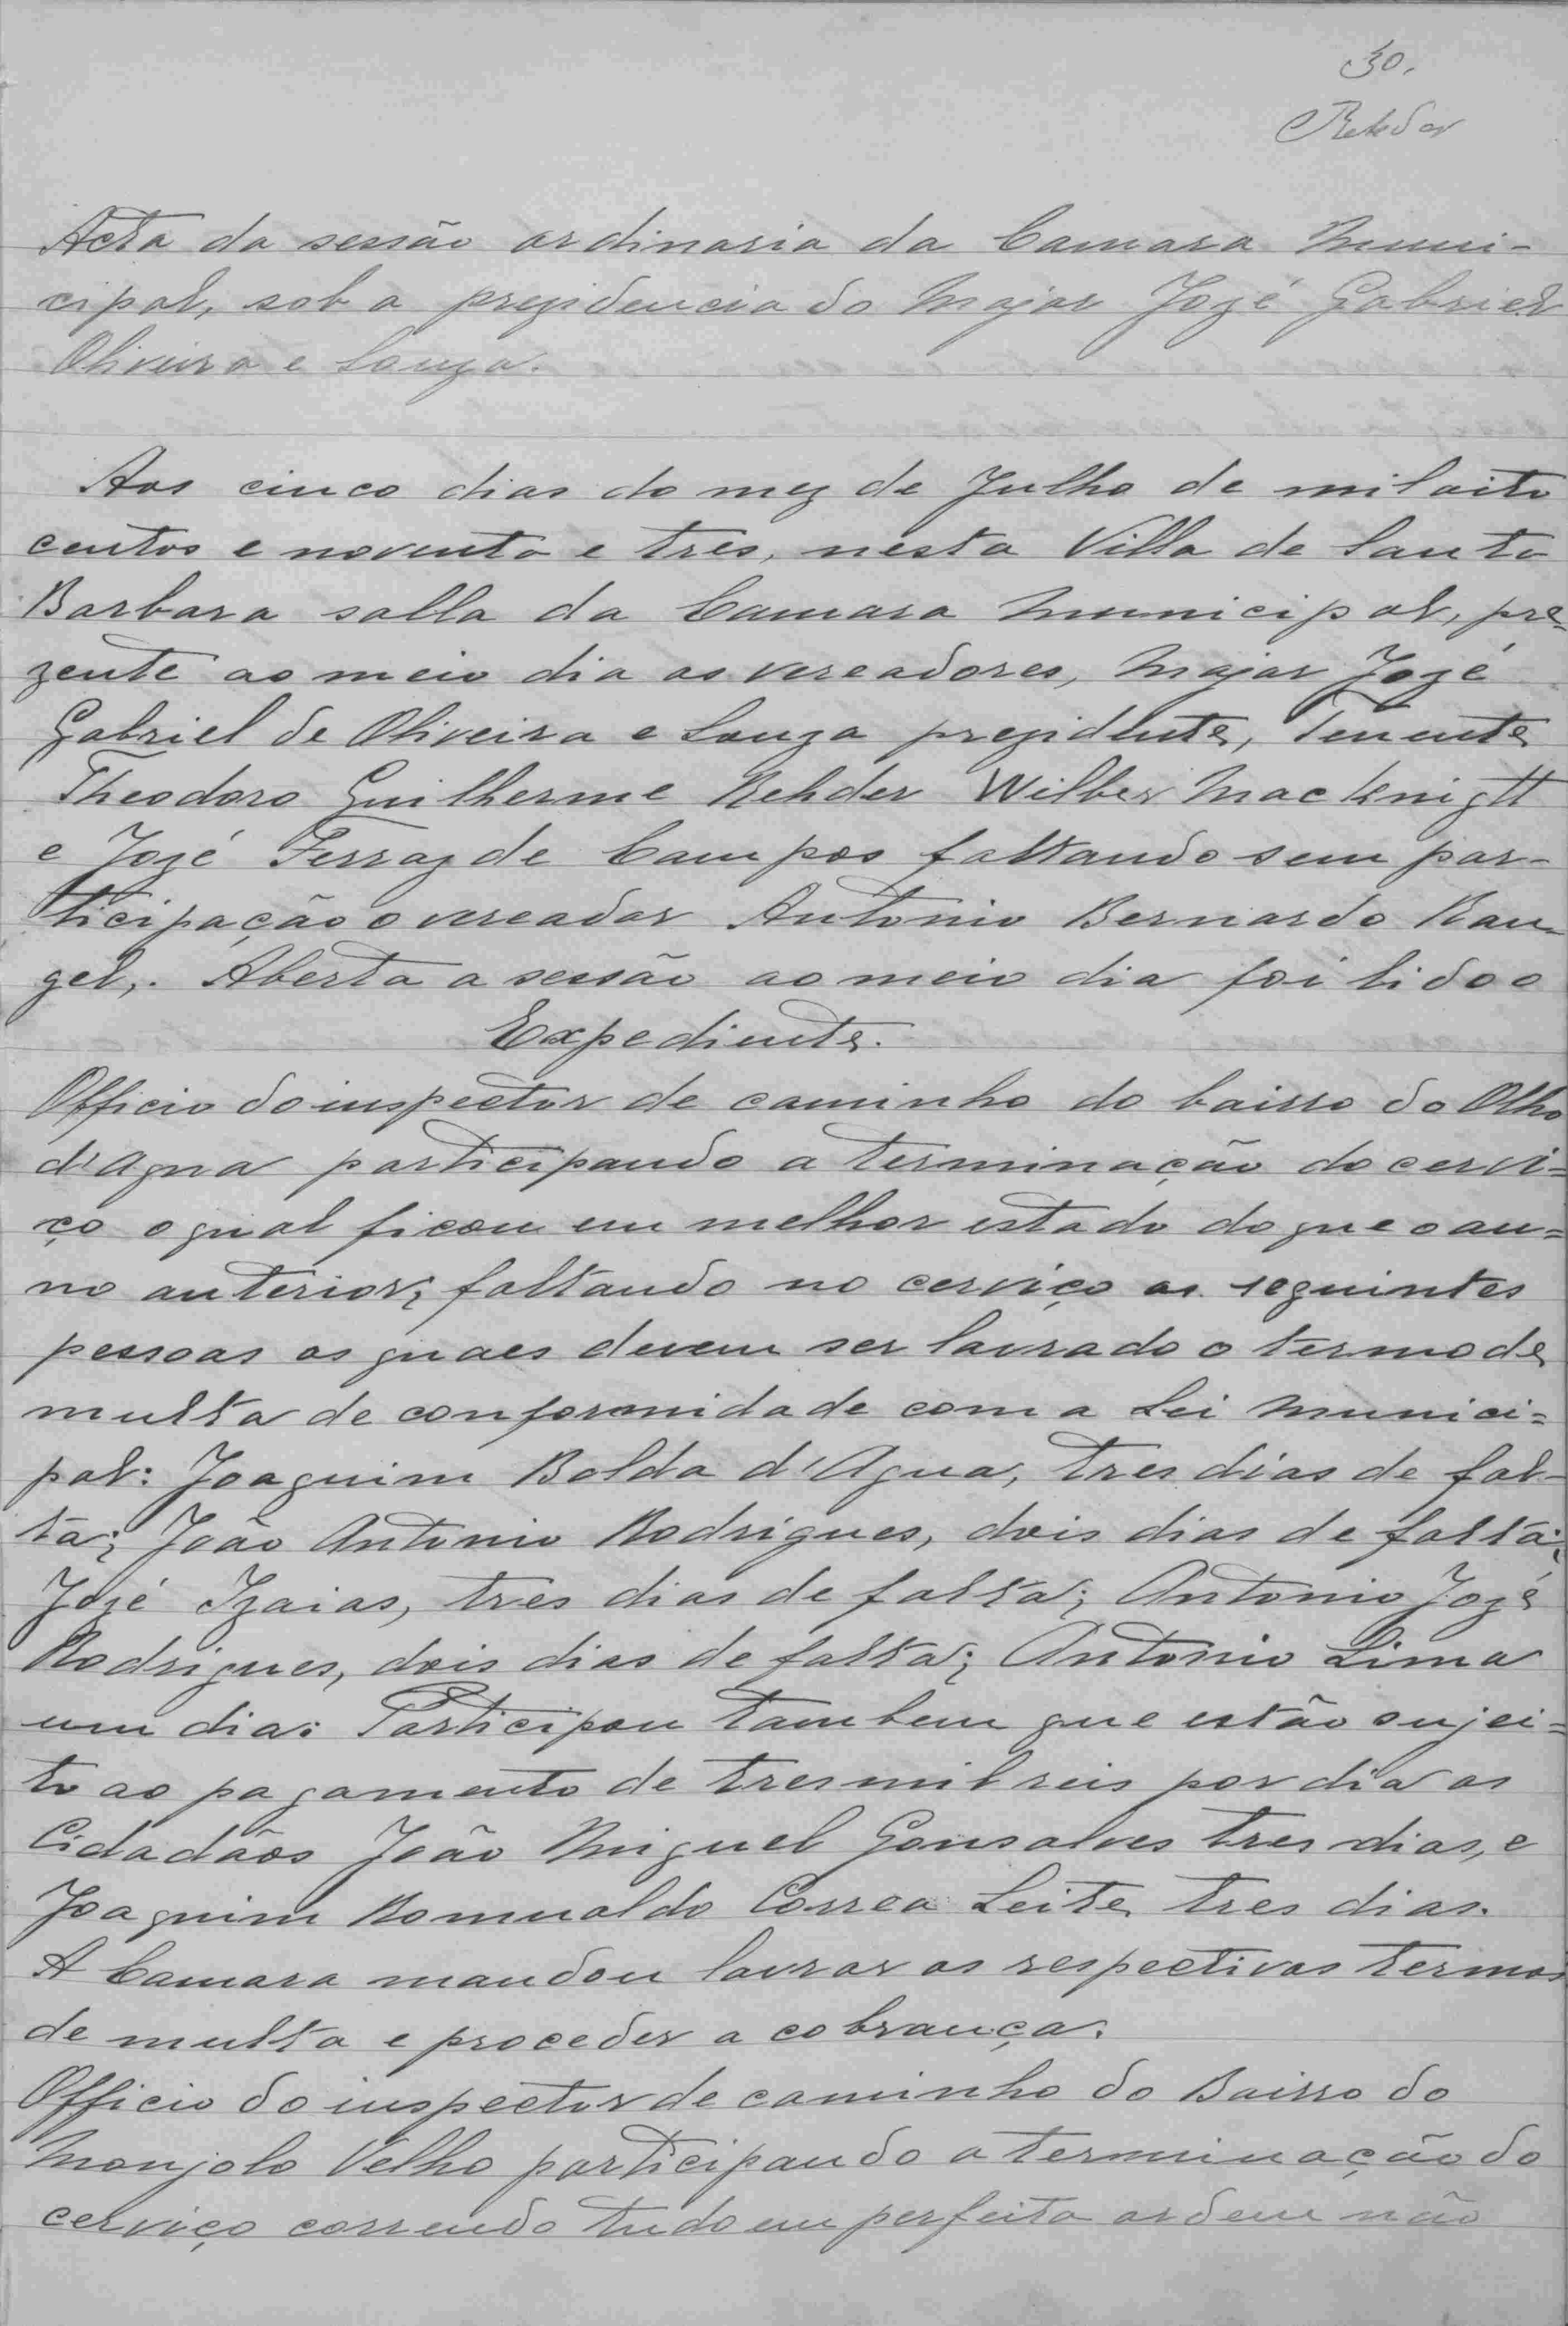 30.
Rehder
Acta da sessão ordinaria da Camara Muni-
cipal, sob a prezidencia do Major Jozé Gabriel
Oliveira e Souza.
Aos cinco dias do mez de Julho de mil oito
centos e noventa e tres, nesta Villa de Santa
Barbara salla da Camara Municipal, pre-
zente ao meio dia os vereadores, Major Jozé
Gabriel de Oliveira e Souza prezidente, Tenente
Theodoro Guilherme Rehder Wilber Mac Knigtt
e Jozé Ferraz de Campos faltando sem par-
ticipação o vereador Antonio Bernardo Ran-
gel,. Aberta a sessão ao meio dia foi lido o
Expediente.
Officio do inspector de caminho do bairro do Olho
d'Agua participando a terminação do cervi=
ço o qual ficou em melhor estado do que o an=
no anterior; faltando no cerviço as seguintes
pessoas os quaes devem ser lavrado o termo de
multa de conformidade com a Lei Munici=
pal: Joaquim Bolda d'Agua, tres dias de fal-
ta; João Antonio Rodrigues, dois dias de falta;
Jozé Izaias, tres dias de falta; Antonio Jozé
Rodrigues, dois dias de falta; Antonio Lima
um dia: Participou tambem que estão sujei=
to ao pagamento de tres mil reis por dia os
Cidadãos João Miguel Gonsalves tres dias, e
Joaquim Romualdo Correa Leite tres dias.
A Camara mandou lavrar os respectivos termos
de multa e proceder a cobrança.
Officio do inspector de caminho do Bairro do
Monjolo Velho participando a terminação do
cerviço correndo tudo em perfeita ordem não